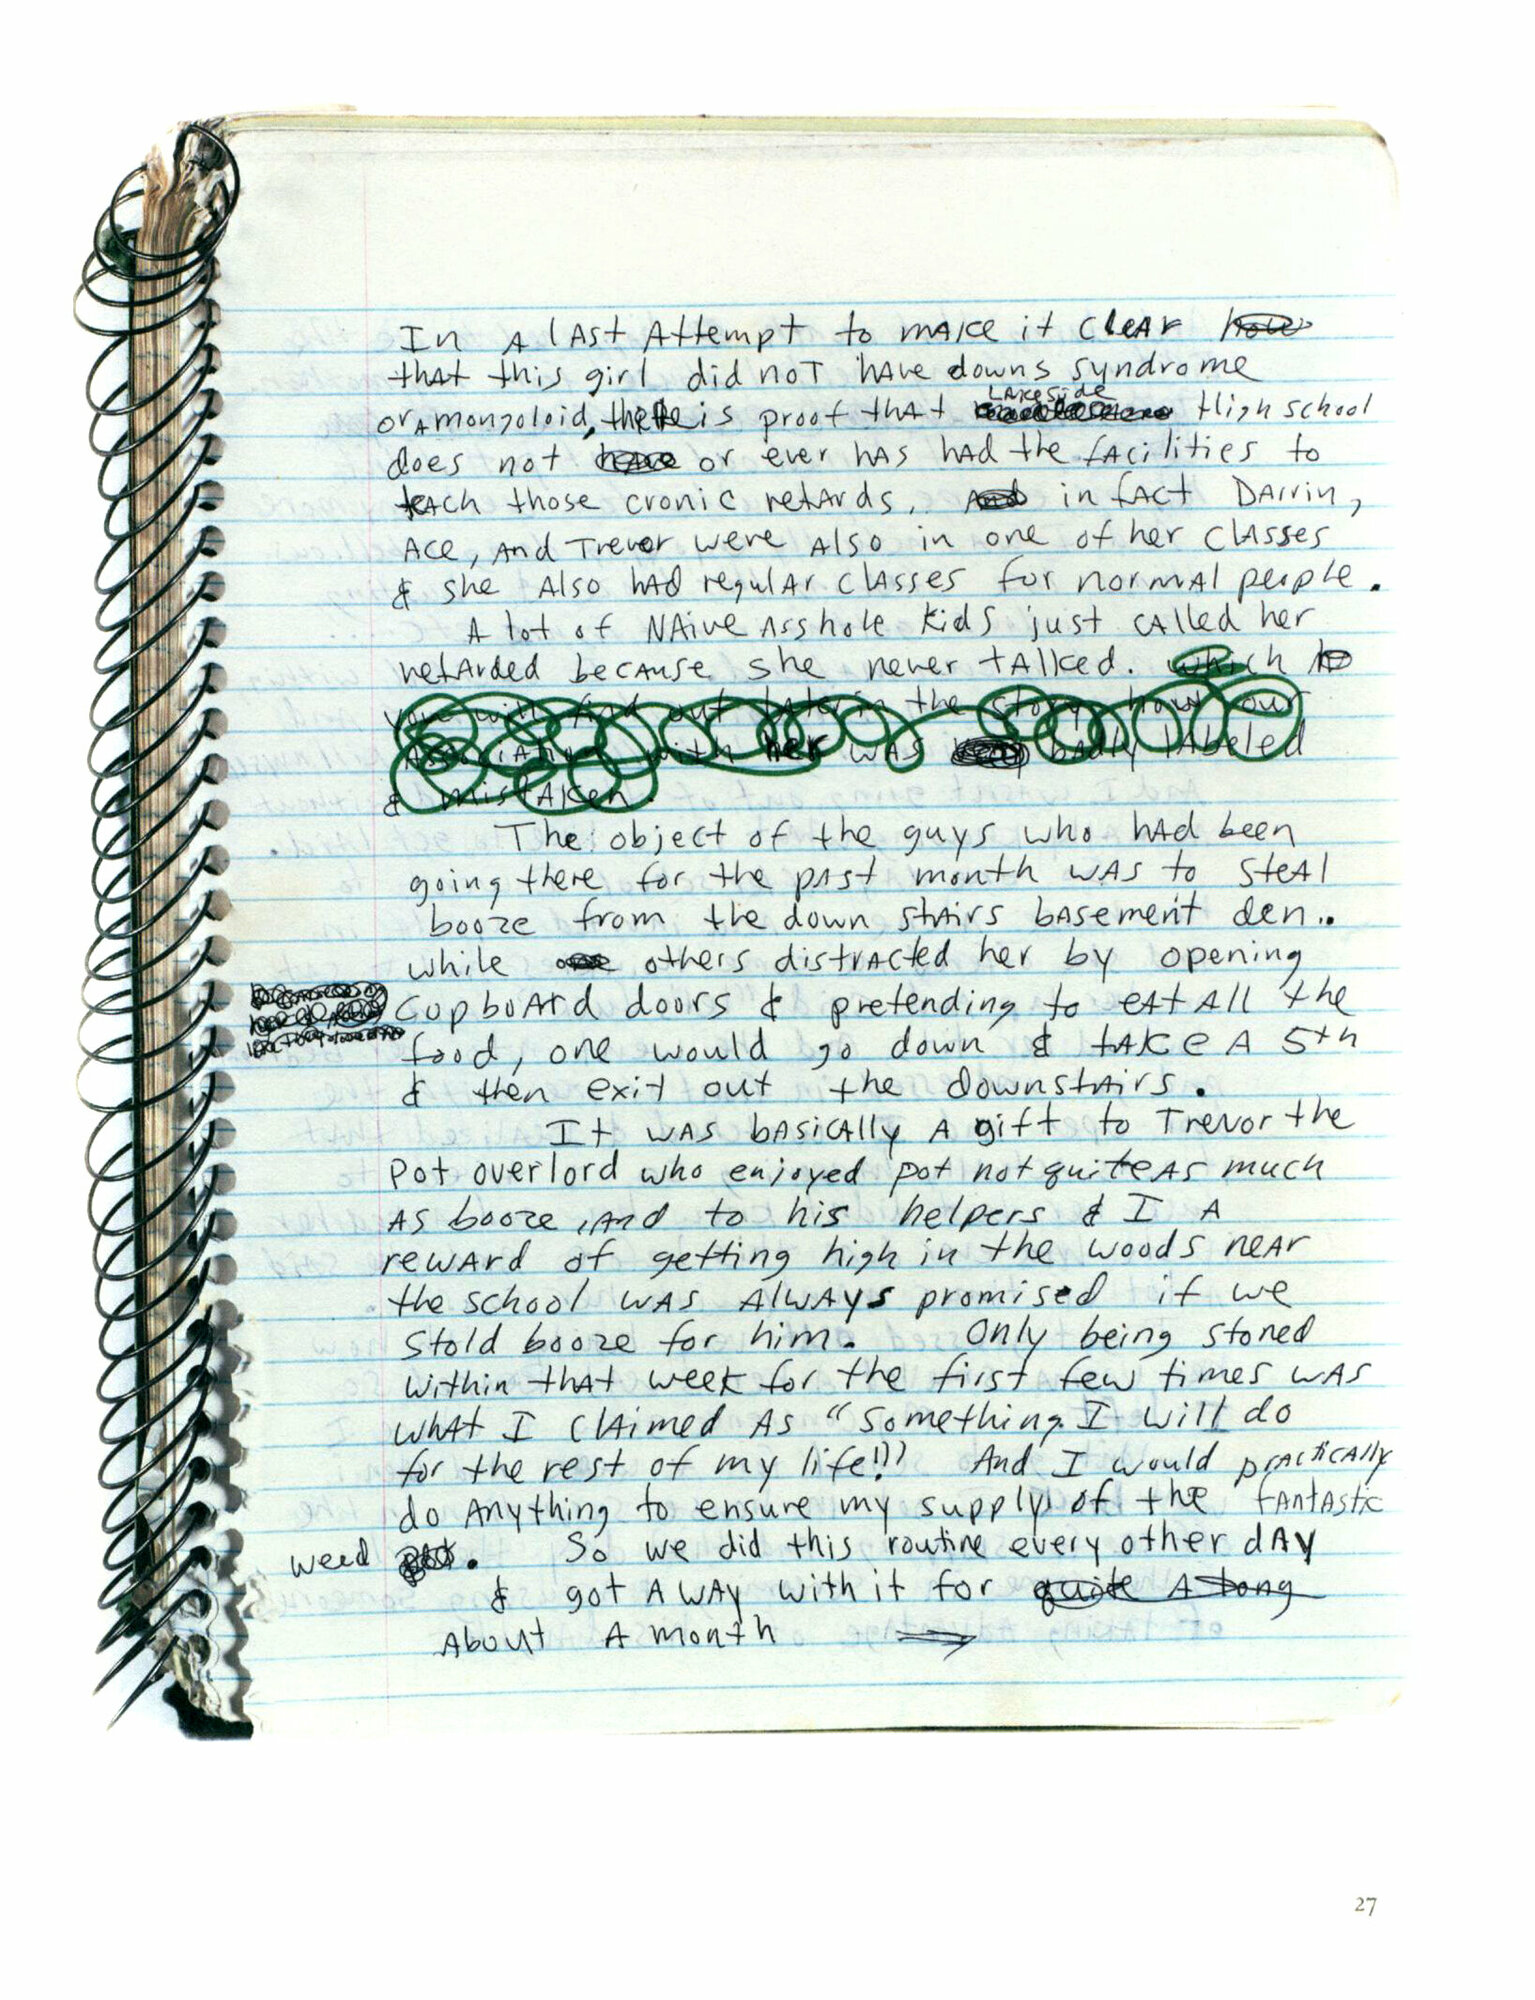 In A lAst Attempt to mAKe it CleAr how
thAt this girl did noT hAve downs syndrome
or A mongoloid, there is proof thAt LAKeside High school
does not have or ever hAs hAd the fAcilities to
teAch those cronic retArds. And in fAct DArrin,
Ace, And Trevor were Also in one of her clAsses
& she Also hAd regulAr clAsses for normAl people.
A lot of NAive Asshole Kids just cAlled her
retArded becAuse she never tAlked. which
you will find out lAter in the story how our
AssociAtion with her wAs bAdly lAbeled
& mistAKen.
The object of the guys who hAd been
going there for the pAst month wAs to steAl
booze from the down stAirs bAsement den..
while others distrActed her by opening
CupboArd doors & pretending to eAt All the
food, one would go down & tAKe A 5th
& then exit out the downstAirs.
It wAs bAsicAlly A gift to Trevor the
Pot overlord who enjoyed pot not quite As much
As booze, And to his helpers & I A
rewArd of getting high in the woods neAr
the school wAs AlwAys promised if we
stold booze for him. Only being stoned
within thAt week for the first few times wAs
whAt I clAimed As "something I will do
for the rest of my life!!" And I would prActicAlly
do Anything to ensure my supply of the fAntAstic
weed pot. So we did this routine every other dAy
& got AwAy with it for quite A long
About A month
27